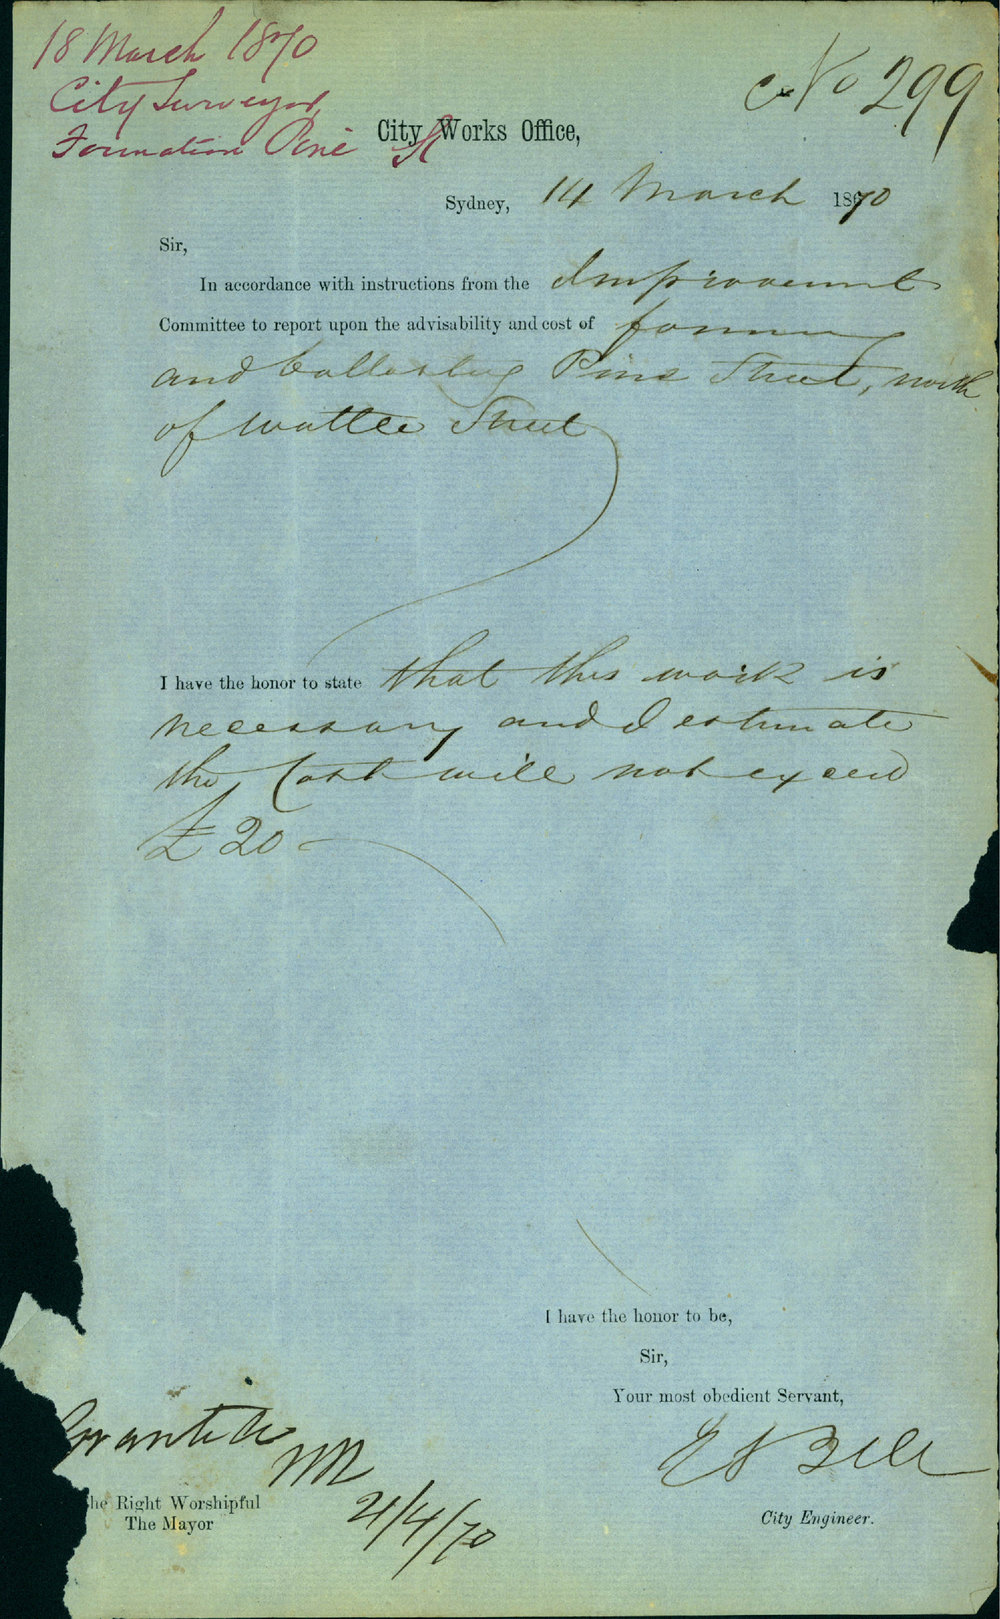 18 March 1870
City Surveyor,
Formation Pine St
No 299
City Works Office,
Sydney, 14 March 1870
Sir,
In accordance with instructions from the Improvement
Committee to report upon the advisability and cost of forming
and ballasting Pine Street, north
of Wattle Street
I have the honor to state that this work is
necessary and I estimate
the Cost will not exceed
£20-
I have the honor to be,
Sir,
Your most obedient Servant,
E Bell
City Engineer.
Granted
he Right Worshipful
The Mayor
21/4/70